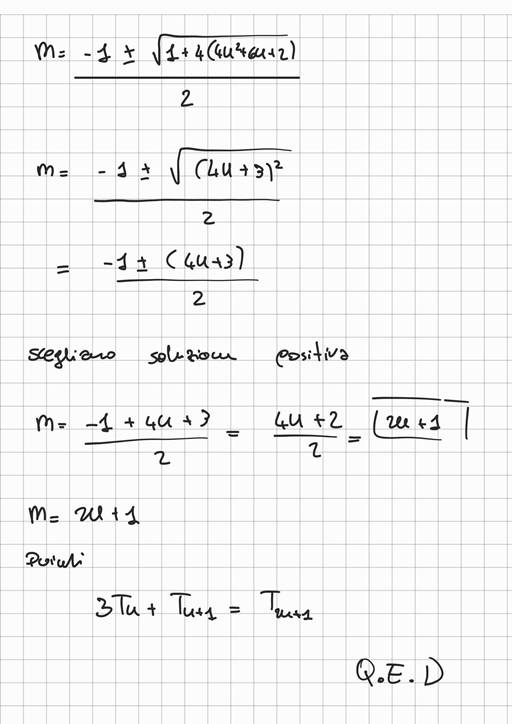 m = (-1 ± √(1 + 4(4n²+6n+2))) / 2
m = (-1 ± √((4n+3)²)) / 2
= (-1 ± (4n+3)) / 2
scegliamo soluzione positiva
m = (-1 + 4n + 3) / 2 = (4n + 2) / 2 = 2n + 1
m = 2n + 1
Quindi
3Tn + Tn+1 = T2n+1
Q.E.D